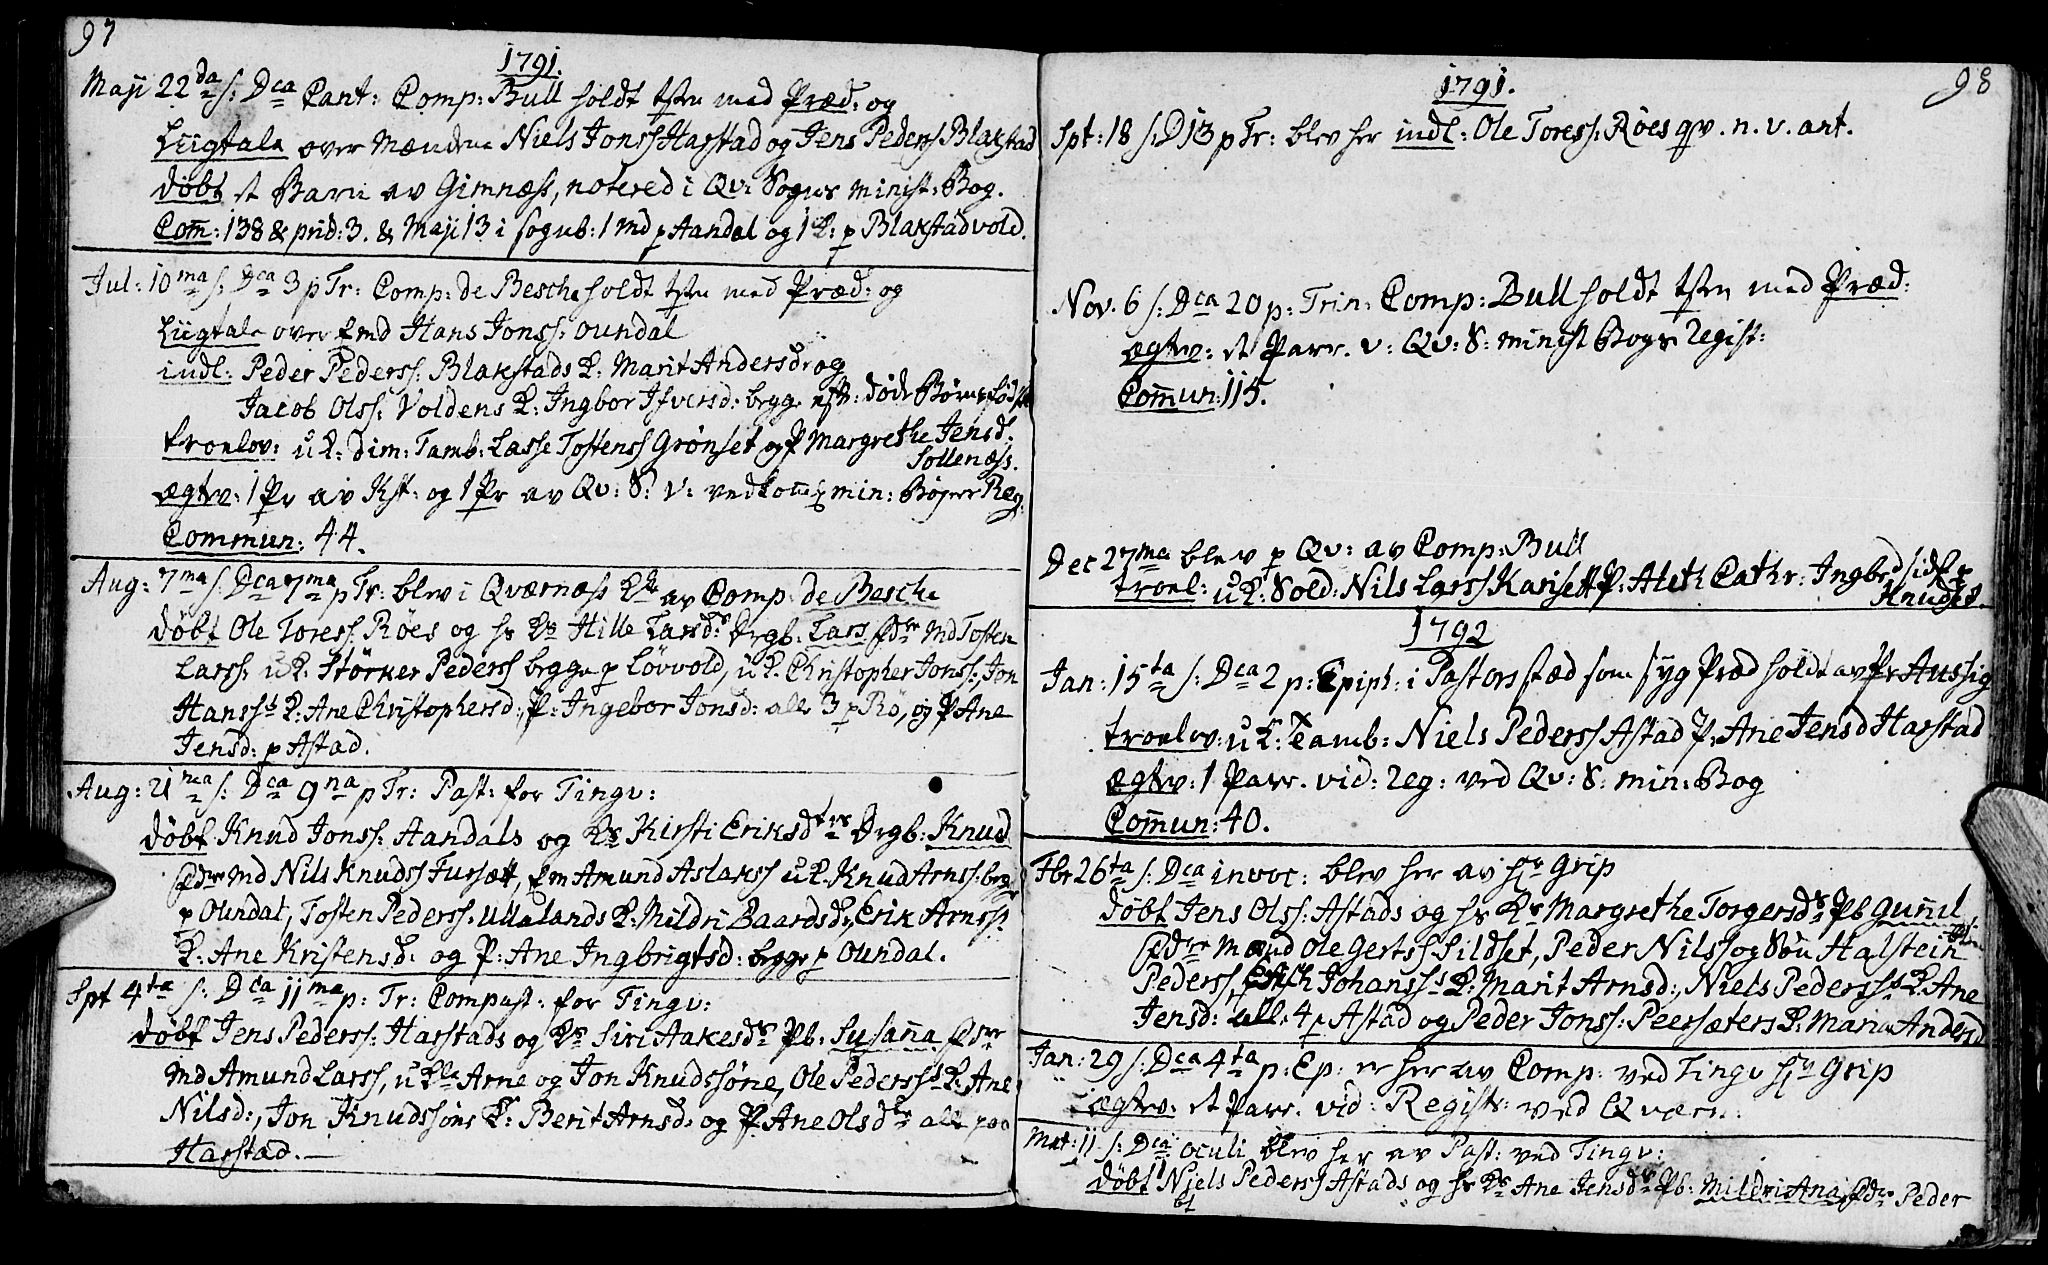 97
1791.
Maji 22da s: Dca Cant: Comp: Bull holdt tsten med Præd: og
Liigtale over Mændene Niels Jonss Harstad og Jens Peders Blakstad
døbt et Barn av Gimnæss, notered i Qv: Sogns minist: Bog.
Com: 138 & prid: 3. & Maji 13 i sognb: 1 md p Aandal og 1 K: p Blakstadvold.
Jul: 10ma s: Dca 3 p Tr: Comp: de Besche holdt tsten med Præd: og
Liigtale over Emd Hans Jonss: oundal
indl: Peder Peders: Blakstads K: Marit Andersdr og
Jacob Olss: Voldens K: Ingbor Ifversd: begge eft: døde Børnefødsl
troelov: u K: dim: Tamb: Lasse Tostenss Grønset og P Margrethe Jensd:
Sollenæss.
ægtv: 1 Pr av Kst: og 1 Pr av Qv: S: v: vedkom min: Bøger Reg:
Commun: 44.
Aug: 7ma s: Dca 7ma p Tr: blev i Qværnæss Kke av Comp: de Besche
døbt Ole Toress: Røes og hs Ks Hille Larsd: Drgb: Lars fdre Md Tosten
Larss: u K: Størker Pederss begge p Løvvold, u K: Christopher Jonss:, Jon
Hansss K: Ane Christophersd:, P: Ingebor Jonsd: alle 3 p Rø, og P Ane
Jensd: p Astad.
Aug: 21ma s: Dca 9na p Tr: Past: for Tingv:
døbt Knud Jonss: Aandals og Ks Kirsti Eriksdtrs Drgb: Knud
fdre Md Nils Knudss Fursætt, Em Amund Aslakss u K: Knud Arnss: beg
p Oundal, Tosten Pederss: Ullalands K: Mildri Baardsd:, Erik Arnss:
K: Ane Kristensd: og P: Ane Ingbrigtsd: begge p Oundal.
Spt 4ta s: Dca 11ma p: Tr: Compast: for Tingv:
døbt Jens Pederss: Harstads og Ks Siri Aakesds Pb: Susanna fdre
Md Amund Larss, u Kle Arne og Jon Knudssøne, Ole Pederss K: Ane
Nilsd:, Jon Knudssøns K: Berit Arnsd: og P Ane Olsdtr alle paa
Harstad.
98
1791.
Spt: 18 s: D 13 p Tr: blev her indl: Ole Toress: Røes qv. n. v. ant.
Nov. 6 s: Dca 20 p: Trin: Comp: Bull holdt tsten med Præd:
ægtv: et Parr. v: Qv: S: minist Bogs Regist:
Commun: 115.
Dec 27ma blev p Qv: av Comp: Bull
troel: u K: Sold: Nils Larss Karisett P: Aleth Cathr: Ingbrd sidst
Knudsd.
1792
Jan: 15ta s: Dca 2 p: Epiph: i Pastors stæd som syg Præd holdt av Hr Aussig
troelov: u K: Tamb: Niels Pederss Astad P: Ane Jensd Harstad
ægtv: 1 Parr. vid: Reg: ved Qv: S: min: Bog
Commun: 40.
Fbr 26ta s: Dca invoc: blev her av Hr Grip
døbt Jens Olss: Astads og hs Ks Margrethe Torgersds Pb Gunnil
fdre Mænd Ole Gertss Sildset, Peder Nilss og Søn Halstein
Pederss, Erich Johansss K: Marit Arnsd:, Niels Pedersss K: Ane
Jensd: all: 4 p Astad og Peder Jonss: Peersæters K: Maria Andersd
Jan: 29 s: Dca 4ta p: Ep: er her av Comp: ved Tingv Hr Grip
ægtv: et Parr. vid: Registr: ved Qværn:
Mrt: 11 s: Dca oculi blev her av Past: ved Tingv:
døbt Niels Pederss Astads og hs Ks Ane Jensds Pb: Mildri Ana fdre Peder